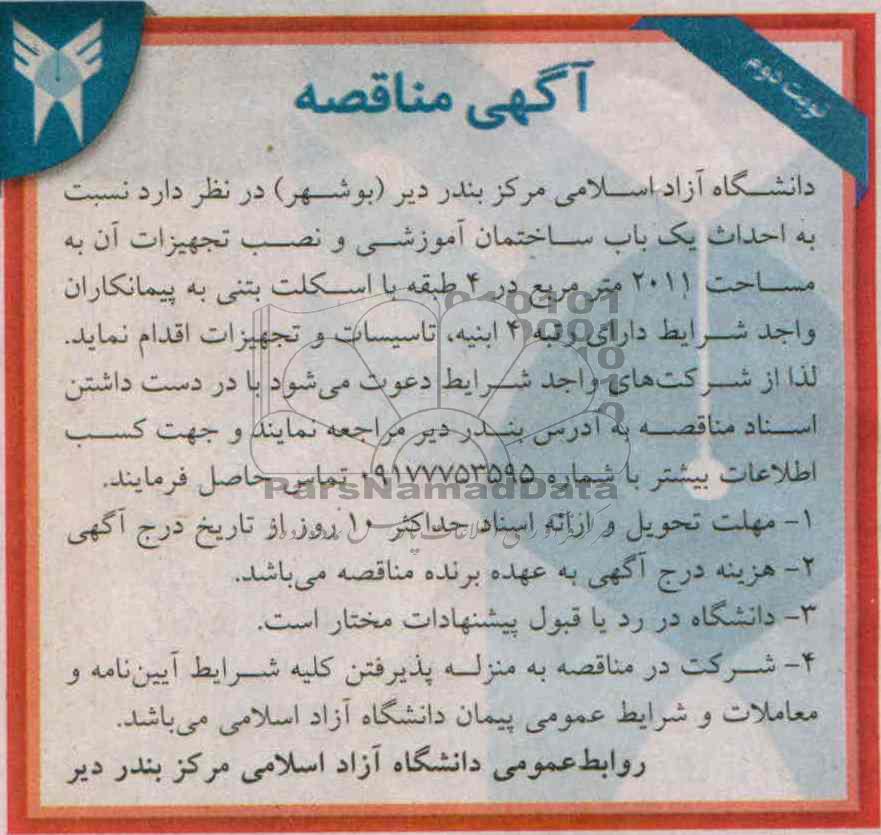 نوبت دوم
آگهی مناقصه
دانشگاه آزاد اسلامی مرکز بندر دیر (بوشهر) در نظر دارد نسبت
به احداث یک باب ساختمان آموزشی و نصب تجهیزات آن به
مساحت ۲۰۱۱ متر مربع در ۴ طبقه با اسکلت بتنی به پیمانکاران
واجد شرایط دارای رتبه ۴ ابنیه، تاسیسات و تجهیزات اقدام نماید.
لذا از شرکت‌های واجد شرایط دعوت می‌شود با در دست داشتن
اسناد مناقصه به آدرس بندر دیر مراجعه نمایند و جهت کسب
اطلاعات بیشتر با شماره ۰۹۱۷۷۷۵۳۵۹۵ تماس حاصل فرمایند.
ParsNamadData
۱- مهلت تحویل و ارائه اسناد حداکثر ۱۰ روز از تاریخ درج آگهی
۲- هزینه درج آگهی به عهده برنده مناقصه می‌باشد.
۳- دانشگاه در رد یا قبول پیشنهادات مختار است.
۴- شرکت در مناقصه به منزله پذیرفتن کلیه شرایط آیین‌نامه و
معاملات و شرایط عمومی پیمان دانشگاه آزاد اسلامی می‌باشد.
روابط‌عمومی دانشگاه آزاد اسلامی مرکز بندر دیر